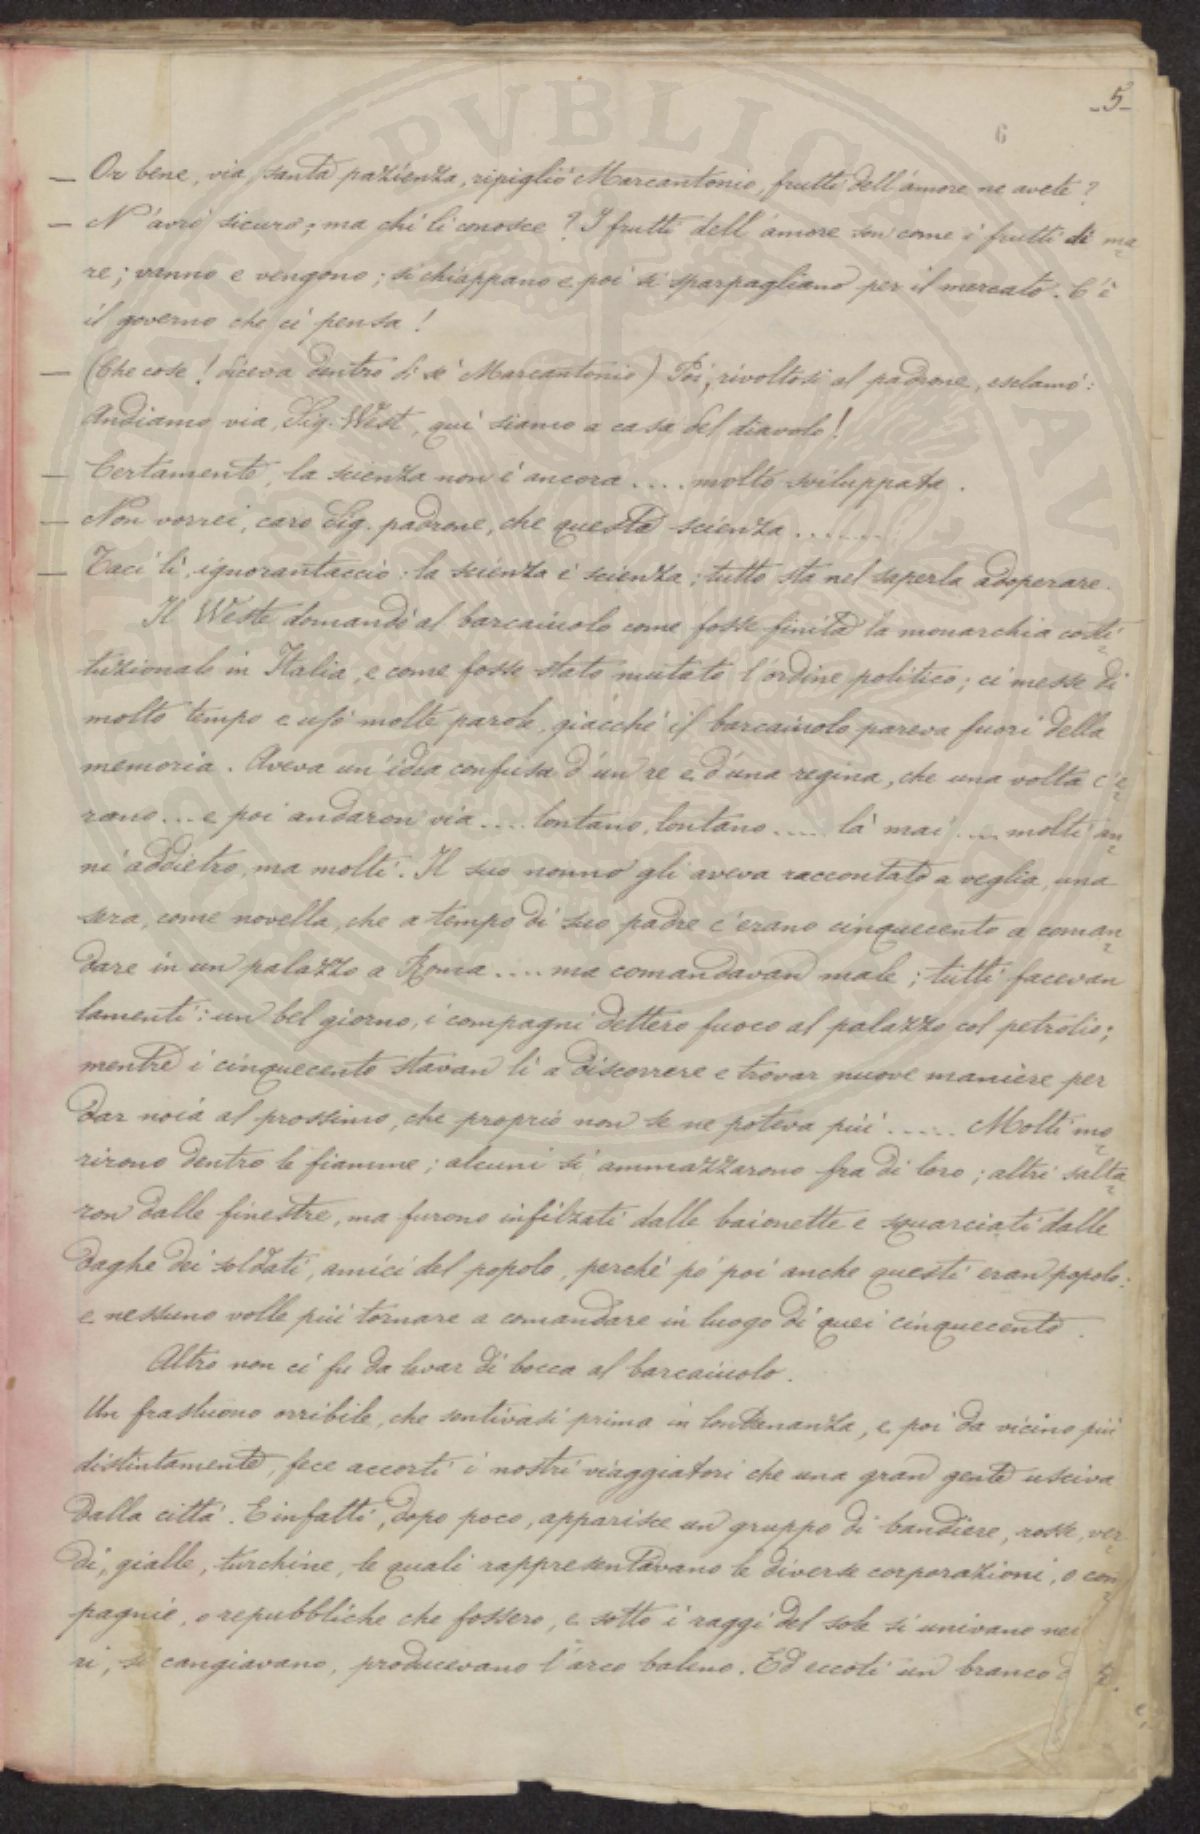 -5-
6
— Or bene, via, santa pazienza, ripigliò Marcantonio, frutti dell'amore ne avete?
— N'avrò sicuro; ma chi li conosce? I frutti dell'amore son come i frutti di ma=
re; vanno e vengono; si chiappano e poi si sparpagliano per il mercato. C'è
il governo che ci pensa!
— (Che cose! diceva dentro di sè Marcantonio) Poi, rivoltosi al padrone, esclamò:
Andiamo via, Sig. West, qui siamo a casa del diavolo!
— Certamente, la scienza non è ancora .... molto sviluppata.
— Non vorrei, caro Sig. padrone, che questa scienza ......
— Taci lì, ignorantaccio: la scienza è scienza; tutto sta nel saperla adoperare.
Il Weste domandò al barcaiuolo come fosse finita la monarchia costi=
tuzionale in Italia, e come fosse stato mutato l'ordine politico; ci messe di
molto tempo e usò molte parole, giacchè il barcaiuolo pareva fuori della
memoria. Aveva un'idea confusa d'un re e d'una regina, che una volta c'e=
rano ... e poi andaron via .... lontano, lontano .... là mai .... molti an=
ni addietro, ma molti. Il suo nonno gli aveva raccontato a veglia, una
sera, come novella, che a tempo di suo padre c'erano cinquecento a coman=
dare in un palazzo a Roma .... ma comandavan male; tutti facevan
lamenti: un bel giorno, i compagni dettero fuoco al palazzo col petrolio;
mentre i cinquecento stavan lì a discorrere e trovar nuove maniere per
dar noia al prossimo, che proprio non se ne poteva più ..... Molti mo=
rirono dentro le fiamme; alcuni si ammazzarono fra di loro; altri salta=
ron dalle finestre, ma furono infilzati dalle baionette e squarciati dalle
daghe dei soldati, amici del popolo, perchè pò poi anche questi eran popolo:
e nessuno volle più tornare a comandare in luogo di quei cinquecento.
Altro non ci fu da levar di bocca al barcaiuolo.
Un frastuono orribile, che sentivasi prima in lontananza, e poi da vicino più
distintamente, fece accorti i nostri viaggiatori che una gran gente usciva
dalla città. E infatti, dopo poco, apparisce un gruppo di bandiere, rosse, ver=
di, gialle, turchine, le quali rappresentavano le diverse corporazioni, o com=
pagnie, o repubbliche che fossero, e sotto i raggi del sole si univano
ri, si cangiavano, producevano l'arco baleno. Ed eccoti un branco